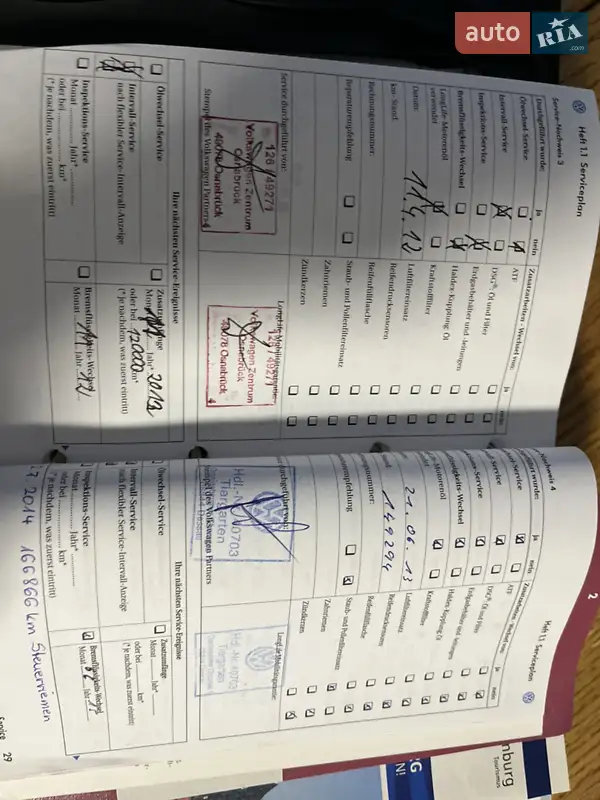 auto RIA.com
Heft 1.1 Serviceplan
Service-Nachweis 3
Durchgeführt wurde: ja nein
Ölwechsel-Service
Intervall-Service
Inspektions-Service
Bremsflüssigkeits-Wechsel
LongLife-Motorenöl verwendet
Datum: 11.4.12
km-Stand:
Rechnungsnummer:
Reparaturempfehlung
Service durchgeführt von:
Stempel des Volkswagen Partners
126 / 49271
Volkswagen Zentrum
Osnabrück
49078 Osnabrück
4
Zusatzarbeiten - Wechsel von: ja nein
ATF
DSG® Öl und Filter
Erdgasbehälter und -leitungen
Haldex-Kupplung: Öl
Kraftstofffilter
Luftfiltereinsatz
Reifendrucksensoren
Reifenfüllflasche
Staub- und Pollenfiltereinsatz
Zahnriemen
Zündkerzen
LongLife-Mobilitätsgarantie
126 / 49271
Volkswagen Zentrum
Osnabrück
49078 Osnabrück
4
Ihre nächsten Service-Ereignisse
Ölwechsel-Service
Intervall-Service
nach flexibler Service-Intervall-Anzeige
Inspektions-Service
Monat Jahr*
oder bei km*
(*je nachdem, was zuerst eintritt)
Zusatzumfänge
Monat Jahr* 2013
oder bei 120000 km*
(*je nachdem, was zuerst eintritt)
Bremsflüssigkeits-Wechsel
Monat Jahr 12
2
Heft 1.1 Serviceplan
Nachweis 4
ja nein
21.06.13
149294
Zusatzarbeiten - Wechsel von: ja nein
ATF
DSG® Öl und Filter
Erdgasbehälter und -leitungen
Haldex-Kupplung: Öl
Kraftstofffilter
Luftfiltereinsatz
Reifendrucksensoren
Reifenfüllflasche
Staub- und Pollenfiltereinsatz
Zahnriemen
Zündkerzen
Tiergarten
Ihre nächsten Service-Ereignisse
Ölwechsel-Service
Intervall-Service
nach flexibler Service-Intervall-Anzeige
Inspektions-Service
Monat Jahr*
oder bei km*
(*je nachdem, was zuerst eintritt)
Zusatzumfänge
Monat Jahr*
oder bei km*
(*je nachdem, was zuerst eintritt)
Bremsflüssigkeits-Wechsel
Monat Jahr
2014 166866 km Steuerriemen
Service 29
nburg
Tourismus